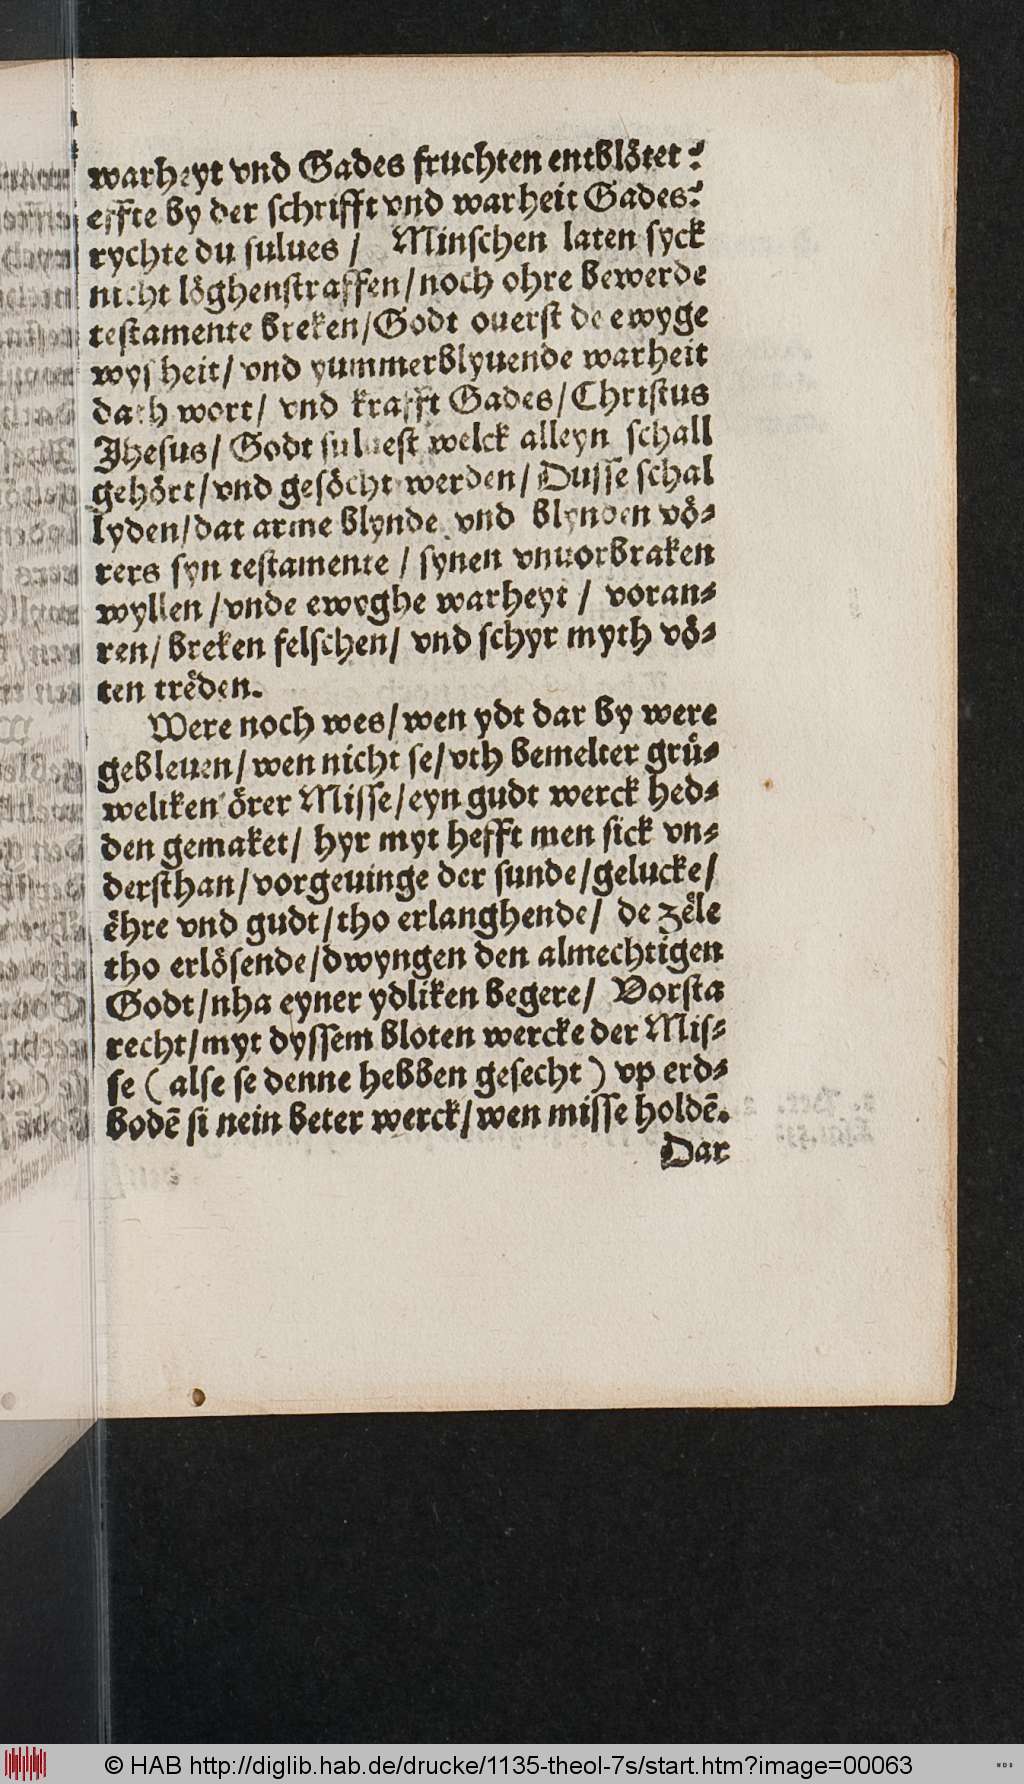 warheyt vnd Gades fruchten entblötet?
effte by der schrifft vnd warheit Gades?
rychte du sulues / Minschen laten syck
nicht löghenstraffen/noch ohre bewerde
testamente breken/Godt ouerst de ewyge
wysheit/ vnd yummerblyuende warheit
dath wort/ vnd krafft Gades/Christus
Jhesus/ Godt suluest welck alleyn schall
gehört/vnd gesöcht werden/Dusse schal
lyden/dat arme blynde vnd blynden vö⸗
rers syn testamente / synen vnuorbraken
wyllen /vnde ewyghe warheyt / voran⸗
ren/ breken felschen/ vnd schyr myth vö⸗
ten trëden.
Were noch wes/wen ydt dar by were
gebleuen/wen nicht se/vth bemelter grü⸗
weliken örer Misse/eyn gudt werck hed⸗
den gemaket/ hyr myt hefft men sick vn⸗
dersthan/vorgeuinge der sunde/gelucke/
ëhre vnd gudt/tho erlanghende/ de zële
tho erlösende/dwyngen den almechtigen
Godt/nha eyner ydliken begere/ Vorsta
recht/myt dyssem bloten wercke der Mis⸗
se (alse se denne hebben gesecht) vp erd⸗
bodē si nein beter werck/wen misse holdē.
Dar
© HAB http://diglib.hab.de/drucke/1135-theol-7s/start.htm?image=00063